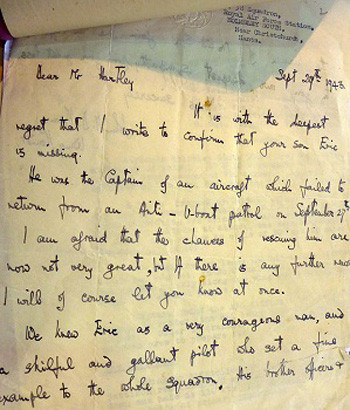 Squadron,
Royal Air Force Station,
HOLMSLEY SOUTH,
Near Christchurch,
Hants.
Dear Mr Hartley
Sept 29th 1943.
It is with the deepest
regret that I write to confirm that your son Eric
is missing.
He was the Captain of an aircraft which failed to
return from an Anti-U-boat patrol on September 27th
I am afraid that the chances of rescuing him are
now not very great, but if there is any further news
I will of course let you know at once.
We knew Eric as a very courageous man, and
a skilful and gallant pilot who set a fine
example to the whole squadron. His brother officers &